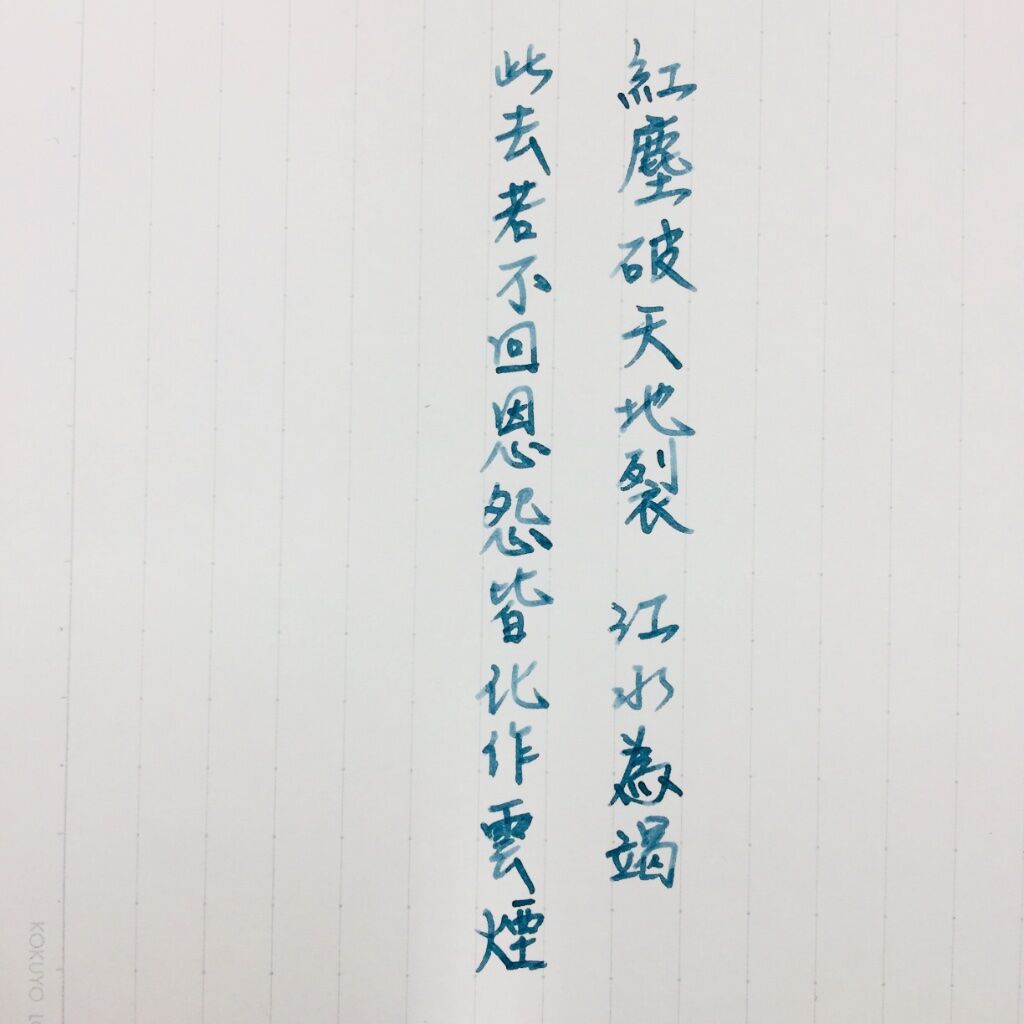 紅塵破天地裂 江水為竭
此去若不回恩怨皆化作雲煙
KOKUYO